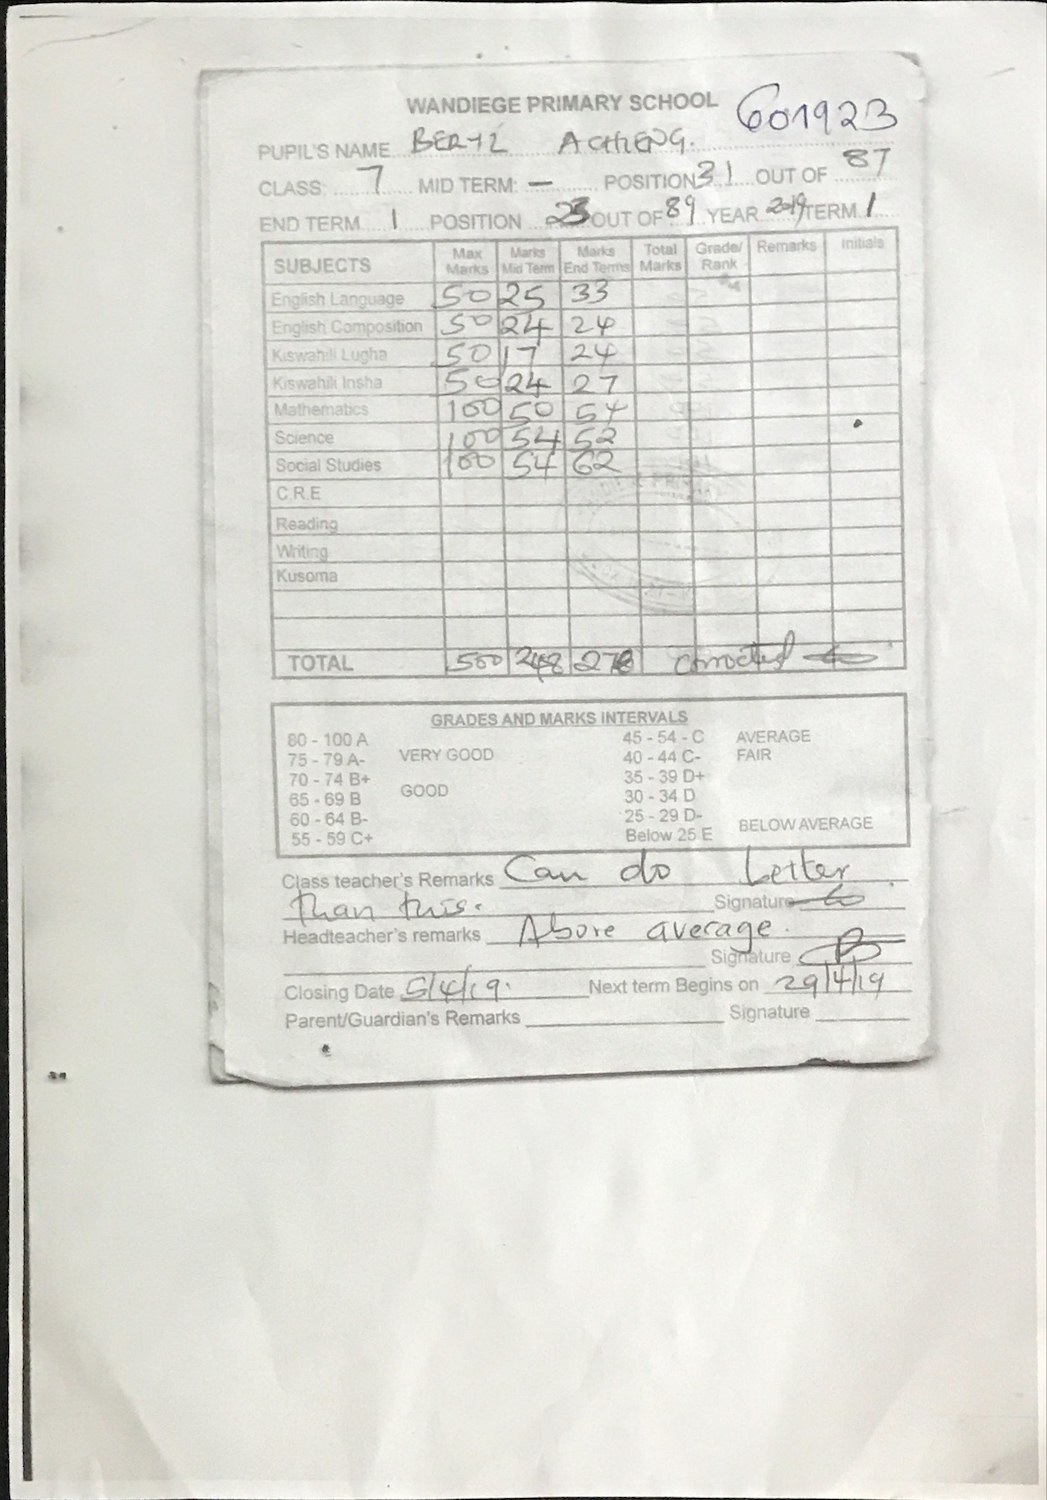 WANDIEGE PRIMARY SCHOOL 601923
PUPIL'S NAME BERYL ACHIENG.
CLASS: 7 MID TERM: – POSITION 31 OUT OF 87
END TERM 1 POSITION 23 OUT OF 89 YEAR 2019 TERM 1
SUBJECTS Max Marks Marks Mid Term Marks End Terms Total Marks Grade/ Rank Remarks Initials
English Language 50 25 33
English Composition 50 24 24
Kiswahili Lugha 50 17 24
Kiswahili Insha 50 24 27
Mathematics 100 50 54
Science 100 54 52
Social Studies 100 54 62
C.R.E
Reading
Writing
Kusoma
TOTAL 500 248 276 corrected
GRADES AND MARKS INTERVALS
80 - 100 A 45 - 54 - C AVERAGE
75 - 79 A- VERY GOOD 40 - 44 C- FAIR
70 - 74 B+ 35 - 39 D+
65 - 69 B GOOD 30 - 34 D
60 - 64 B- 25 - 29 D- BELOW AVERAGE
55 - 59 C+ Below 25 E
Class teacher's Remarks Can do better
than this. Signature
Headteacher's remarks Above average.
Signature
Closing Date 5/4/19. Next term Begins on 29/4/19
Parent/Guardian's Remarks Signature